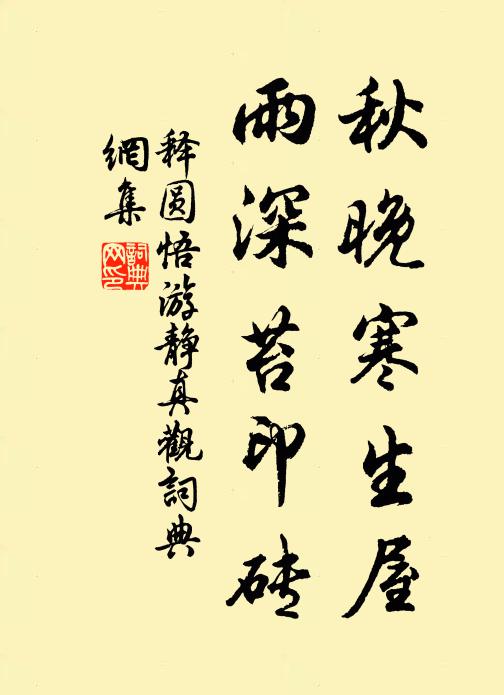 秋晚寒生屋
雨深苔印砖
释圆悟游静真觀詞典
網集
詞典网印